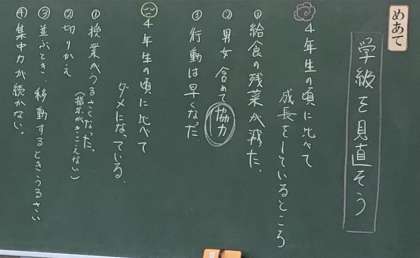 めあて
学級を見直そう
4年生の頃に比べて
成長をしているところ
①給食の残菜が減った。
②男女含めて協力
③行動は早くなた
4年生の頃に比べて
ダメになっている。
①授業がうるさくなった。
(指示がきこえない)
②切りかえ
③並ぶとき、移動するときうるさい
④集中力が続かない。